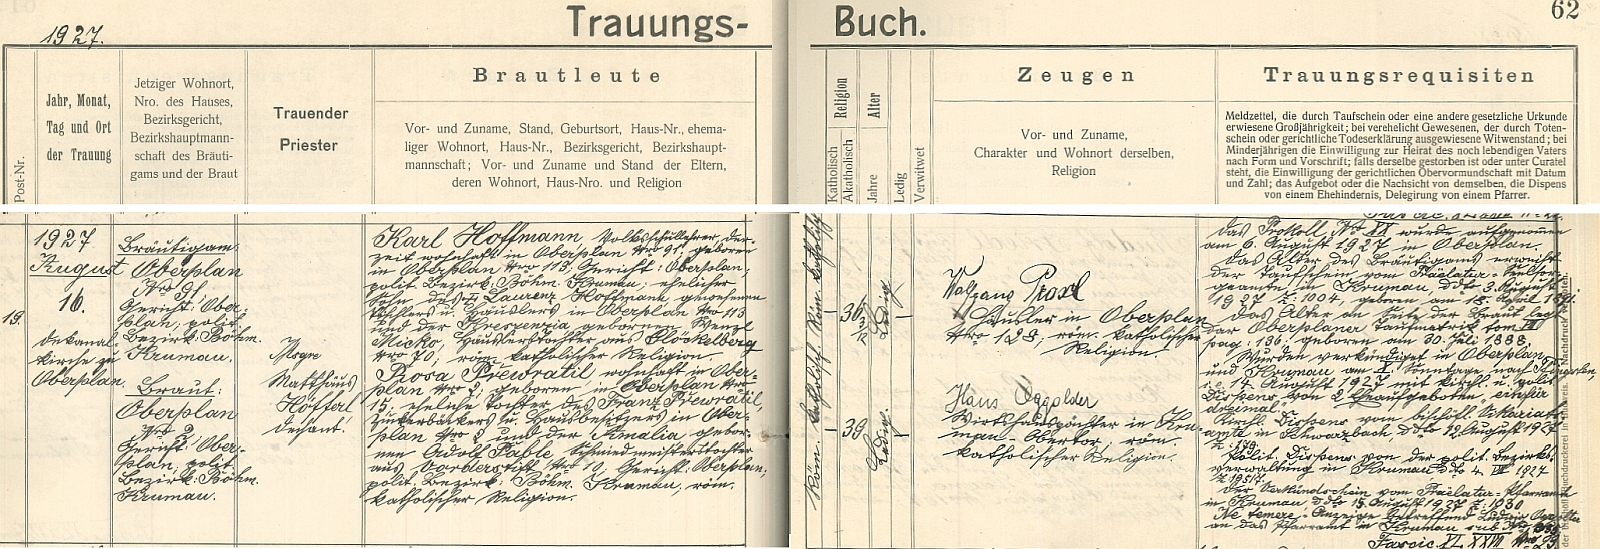 1927.
Trauungs-
Buch.
62
Post-Nr.
Jahr, Monat,
Tag und Ort
der Trauung
Jetziger Wohnort,
Nro. des Hauses,
Bezirksgericht,
Bezirkshauptmann-
schaft des Bräuti-
gams und der Braut
Trauender
Priester
Brautleute
Vor- und Zuname, Stand, Geburtsort, Haus-Nr., ehema-
liger Wohnort, Haus-Nr., Bezirksgericht, Bezirkshaupt-
mannschaft; Vor- und Zuname und Stand der Eltern,
deren Wohnort, Haus-Nro. und Religion
Religion
Katholisch
Akatholisch
Alter
Jahre
Ledig
Verwitwet
Zeugen
Vor- und Zuname,
Charakter und Wohnort derselben,
Religion
Trauungsrequisiten
Meldzettel, die durch Taufschein oder eine andere gesetzliche Urkunde
erwiesene Großjährigkeit; bei verehelicht Gewesenen, der durch Toten-
schein oder gerichtliche Todeserklärung ausgewiesene Witwenstand; bei
Minderjährigen die Einwilligung zur Heirat des noch lebendigen Vaters
nach Form und Vorschrift; falls derselbe gestorben ist oder unter Curatel
steht, die Einwilligung der gerichtlichen Obervormundschaft mit Datum
und Zahl; das Aufgebot oder die Nachsicht von demselben, die Dispens
von einem Ehehindernis, Delegirung von einem Pfarrer.
19.
1927
August
16.
Dekanal-
kirche zu
Oberplan.
Bräutigam:
Oberplan
Nro 91
Gericht: Ober-
plan, polit.
Bezirk: Böhm.
Krumau.
Braut:
Oberplan
Nro 2
Gericht: Ober-
plan, polit.
Bezirk: Böhm.
Krumau.
Msgre
Matthäus
Höfferl
Dechant.
Karl Hoffmann, Volksschullehrer, der-
zeit wohnhaft in Oberplan Nro 91, geboren
in Oberplan Nro 113, Gericht: Oberplan,
polit. Bezirk: Böhm. Krumau; ehelicher
Sohn des Laurenz Hoffmann, gewesenen
u. Häuslers in Oberplan Nro 113
und der Kreszenzia gebornen Wenzl
Micko, Häuslerstochter aus Glöckelberg
Nro 70, röm. katholischer Religion.
Rosa Prewratil wohnhaft in Ober-
plan Nro 2, geboren in Oberplan Nro
15, eheliche Tochter des Franz Prewratil,
Zuckerbäckers u. Hausbesitzers in Ober-
plan Nro 2 und der Amalia gebor-
nen Adolf Pable, Schmiedmeisterstochter
aus Vorderstift Nro 10, Gericht: Oberplan,
polit. Bezirk: Böhm. Krumau, röm.
katholischer Religion.
röm. katholisch
36
Ledig
Röm. katholisch
39
Ledig.
Wolfgang Proxl
Häusler in Oberplan
Nro 128, röm. katholischer
Religion.
Hans
Wirtshauspächter in Kru-
mau-Obertor, röm.
katholischer Religion.
Das Protokoll No XX wurde aufgenommen
am 6. August 1927 in Oberplan.
Das Alter des Bräutigams erweist
der Taufschein vom Prälatur-Seelsor-
geamte in Krumau ddto 3. August
1927 Z: 1004, geboren am 18. April 1891.
Das Alter an Seite der Braut legt
dar Oberplaner Taufmatrik tom
pag: 136: geboren am 30. Juli 1888.
Wurden verkündiget in Oberplan
und Krumau am X. Sonntage nach Pfingsten,
i. e. 14. August 1927 mit kirchl. u. polit.
Dispens von 2 Aufgeboten, einfür
dreimal.
Kirchl. Dispens vom bischöfl. Vikariats
amte in Schwarzbach, ddto 12. August 1927
Polit. Dispens von der polit. Bezirks-
verwaltung in Krumau ddto 4. VIII 1927
Der Verkündschein vom Prälatur-Pfarramt
in Krumau ddto 15. August 1927 Z: 1030
Ne temere-Anzeige
an das Pfarramt in Krumau sub
Fascic. XL XXVII